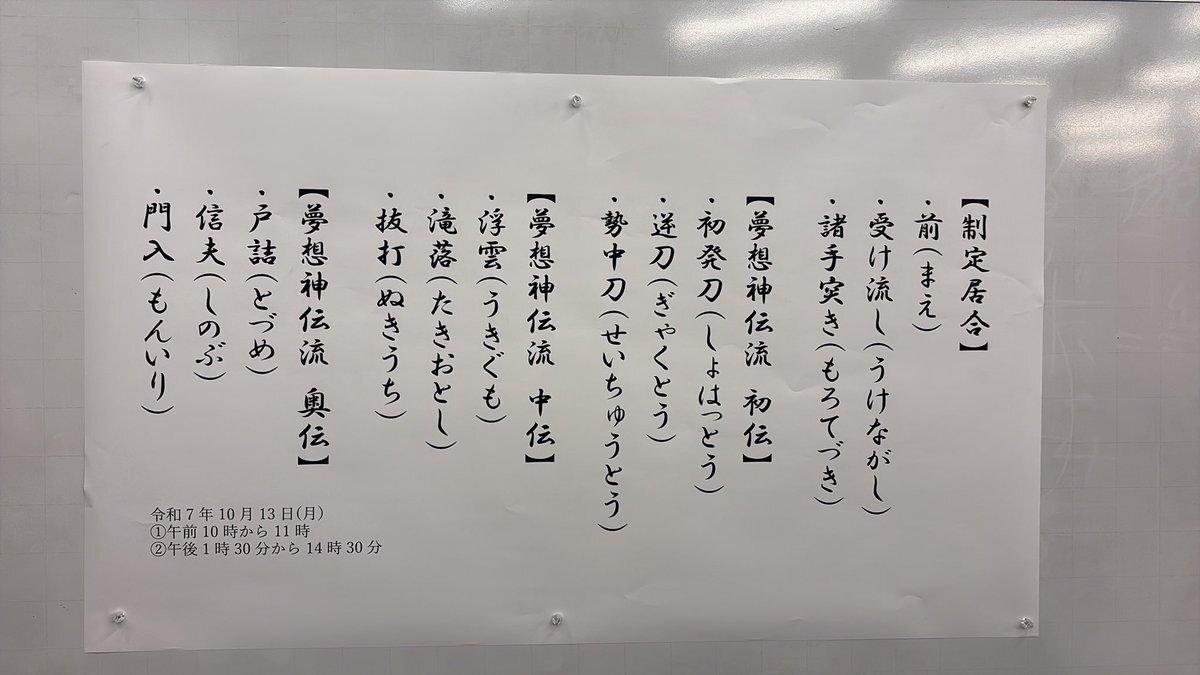 【制定居合】
・前(まえ)
・受け流し(うけながし)
・諸手突き(もろてづき)
【夢想神伝流 初伝】
・初発刀(しょはっとう)
・逆刀(ぎゃくとう)
・勢中刀(せいちゅうとう)
【夢想神伝流 中伝】
・浮雲(うきぐも)
・滝落(たきおとし)
・抜打(ぬきうち)
【夢想神伝流 奥伝】
・戸詰(とづめ)
・信夫(しのぶ)
・門入(もんいり)
令和7年10月13日(月)
①午前10時から11時
②午後1時30分から14時30分